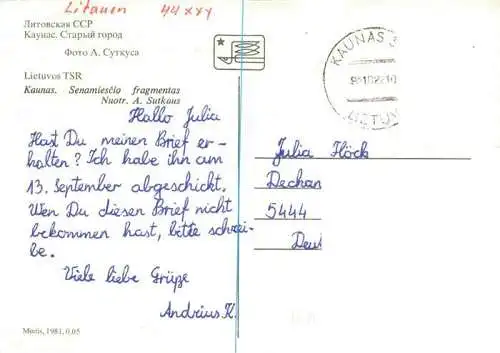 Litauen 44xxy
Литовская ССР
Каунас. Старый город
Фото А. Суткуса
Lietuvos TSR
Kaunas. Senamiesčio fragmentas
Nuotr. A. Sutkaus
Hallo Julia
Hast Du meinen Brief er-
halten? Ich habe ihn am
13. September abgeschickt.
Wen Du diesen Brief nicht
bekommen hast, bitte schrei-
be.
Viele liebe Grüße
Andrius K.
Mintis, 1981, 0,05
KAUNAS
LIETUV
Julia Höck
Dechan
5444
Deut